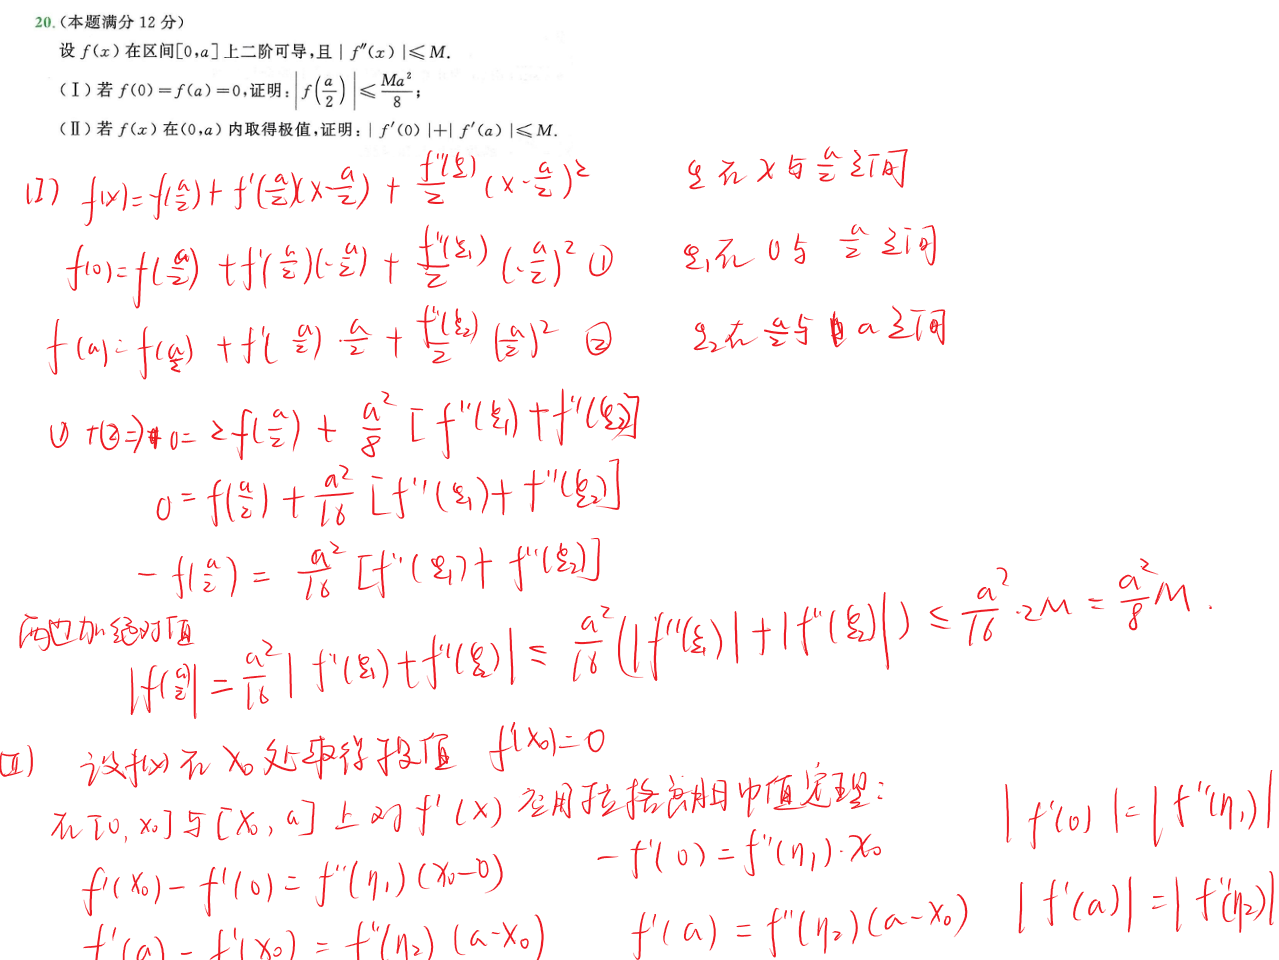 20.(本题满分 12 分)
设 f(x) 在区间[0,a]上二阶可导,且 | f″(x) |≤M.
(Ⅰ)若 f(0)=f(a)=0,证明: |f(a/2)|≤Ma²/8;
(Ⅱ)若 f(x) 在(0,a) 内取得极值,证明: | f′(0) |+| f′(a) |≤M.
(I) f(x)=f(a/2)+f'(a/2)(x-a/2)+f''(ξ)/2 (x-a/2)² ξ在x与a/2之间
f(0)=f(a/2)+f'(a/2)(-a/2)+f''(ξ₁)/2 (-a/2)² ① ξ₁在0与a/2之间
f(a)=f(a/2)+f'(a/2)·a/2+f''(ξ₂)/2 (a/2)² ② ξ₂在a/2与a之间
①+②⇒ 0=2f(a/2)+a²/8 [f''(ξ₁)+f''(ξ₂)]
0=f(a/2)+a²/16 [f''(ξ₁)+f''(ξ₂)]
-f(a/2)=a²/16 [f''(ξ₁)+f''(ξ₂)]
两边加绝对值
|f(a/2)|=a²/16 |f''(ξ₁)+f''(ξ₂)|≤a²/16 (|f''(ξ₁)|+|f''(ξ₂)|)≤a²/16·2M=a²/8 M.
(Ⅱ) 设f(x)在x₀处取得极值 f'(x₀)=0
在[0,x₀]与[x₀,a]上对f'(x)应用拉格朗日中值定理:
f'(x₀)-f'(0)=f''(η₁)(x₀-0) -f'(0)=f''(η₁)·x₀ |f'(0)|=|f''(η₁)|
f'(a)-f'(x₀)=f''(η₂)(a-x₀) f'(a)=f''(η₂)(a-x₀) |f'(a)|=|f''(η₂)|